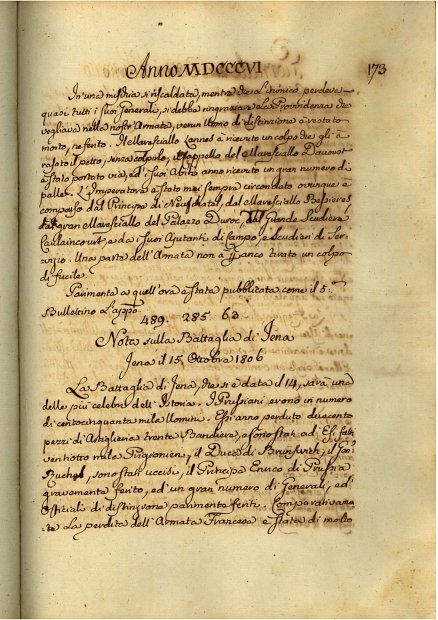 Anno MDCCCVI
173
In una mischia sì riscaldata, mentre che L'inimico perdeva
quasi tutti i suoi Generali, si debba ringraziare La Provvidenza che
vegliava nella nostra Armata, verun Uomo di distinzione è restato
morto, ne ferito. Il Maresciallo Lannes à ricevuto un colpo che gli à
rasato il petto, senza colpirlo, il Cappello del Maresciallo Davoust
è stato portato via, ed i suoi Abiti anno ricevuto un gran numero di
palle. L'Imperatore è stato mai sempre circondato ovunque è
comparso dal Principe di Neufchatel, dal Maresciallo Bessieres,
dal gran Maresciallo del Palazzo Duroc, dal Grande Scudiere
Caulaincourt, e da i suoi Ajutanti di Campo, e Scudieri di Ser-
vizio. Una parte dell'Armata non à p anco tirato un colpo
di fucile.
Parimente a quell'ora è stata pubblicata come il 5.
Bullettino L'app.
489. 285. 63
Nota sulla Battaglia di Jena
Jena il 15. Ottobre 1806
La Battaglia di Jena, che si è data il 14, sarà una
delle più celebri dell'Istoria. I Prussiani erono in numero
di centocinquanta mila Uomini. Essi anno perduto duecento
pezzi di Artiglieria trenta Bandiere, e sono stati ad Essi fatti
ventiotto mila Prigionieri, il Duca di Brunswich, il Gen.
Ruchel, sono stati uccisi, il Principe Enrico di Prussia
gravemente ferito, ed un gran numero di Generali, ed
Offiziali di distinzione parimente feriti. Comparativame-
nte La perdita dell'Armata Francese è stata di molto